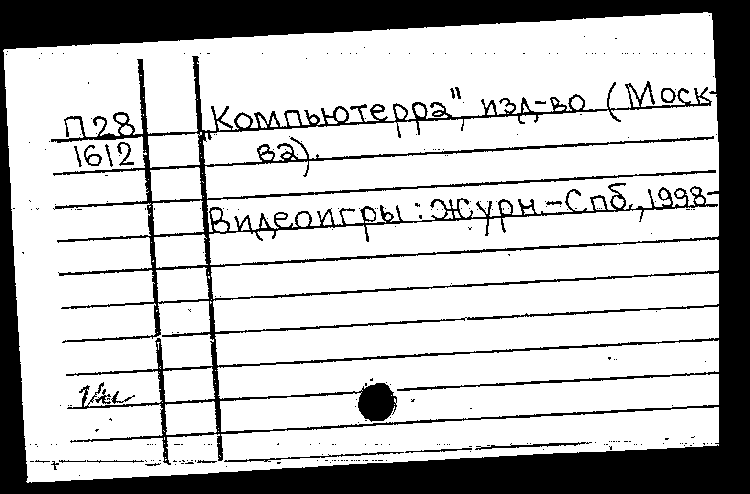 П28
1612
„Компьютерра", изд-во (Моск-
ва).
Видеоигры : журн.-Спб., 1998-